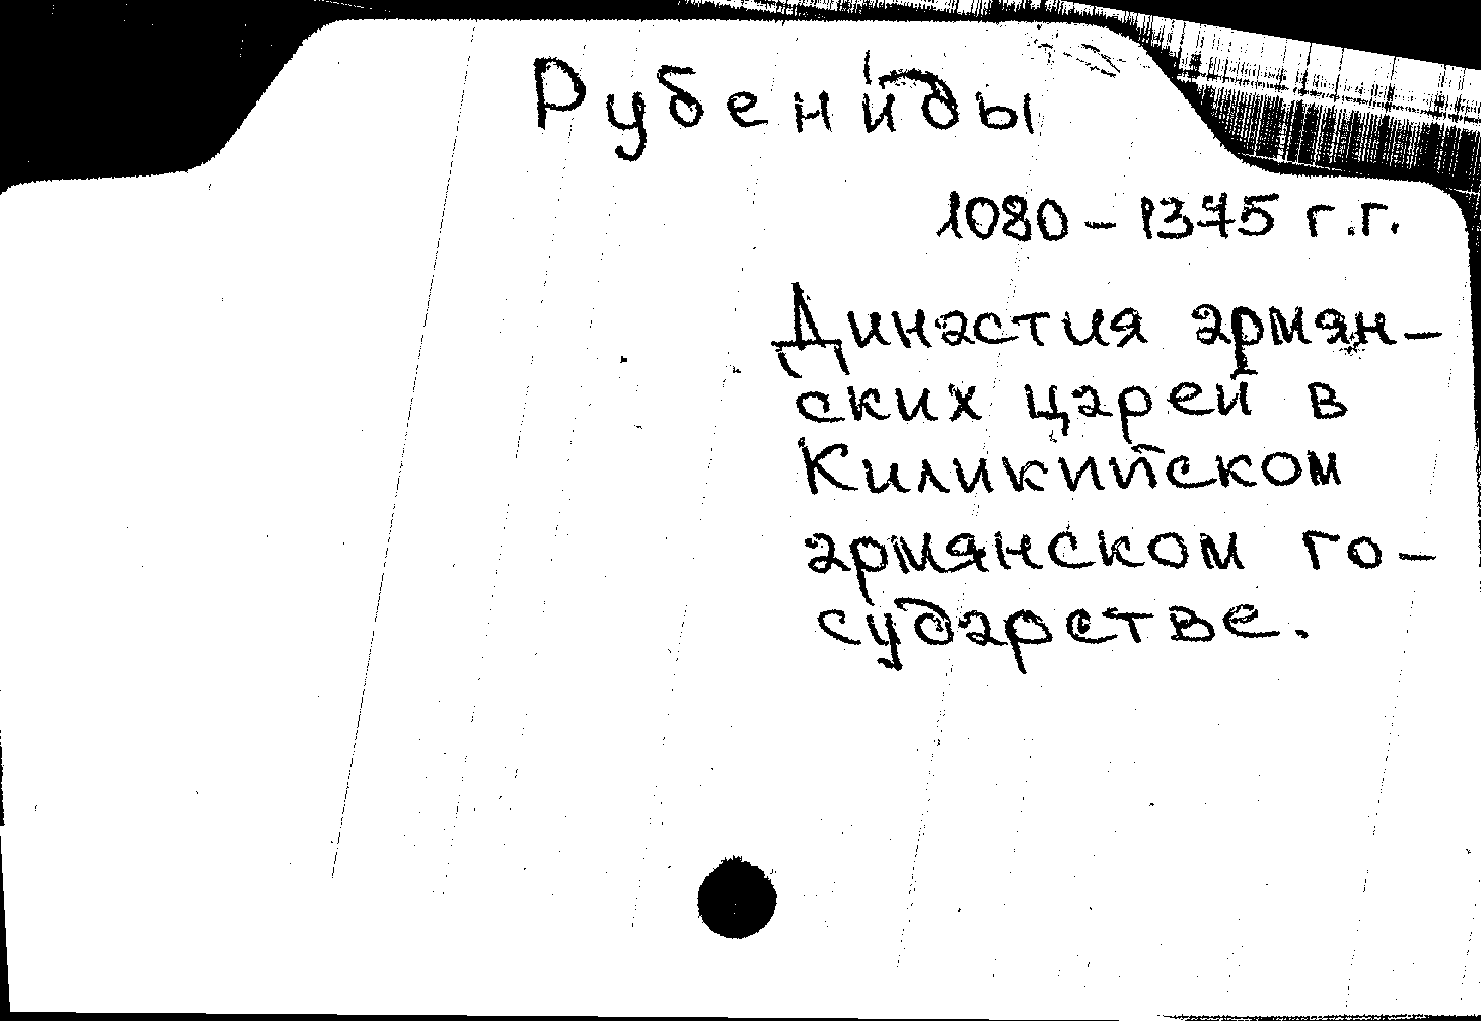 Рубени́ды
1080 – 1375 г.г.
Династия армян-
ских царей в
Киликийском
армянском го-
сударстве.